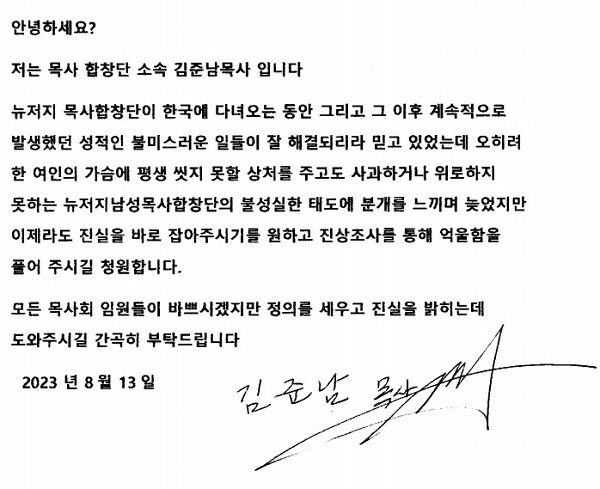 안녕하세요?
저는 목사 합창단 소속 김준남목사 입니다
뉴저지 목사합창단이 한국에 다녀오는 동안 그리고 그 이후 계속적으로
발생했던 성적인 불미스러운 일들이 잘 해결되리라 믿고 있었는데 오히려
한 여인의 가슴에 평생 씻지 못할 상처를 주고도 사과하거나 위로하지
못하는 뉴저지남성목사합창단의 불성실한 태도에 분개를 느끼며 늦었지만
이제라도 진실을 바로 잡아주시기를 원하고 진상조사를 통해 억울함을
풀어 주시길 청원합니다.
모든 목사회 임원들이 바쁘시겠지만 정의를 세우고 진실을 밝히는데
도와주시길 간곡히 부탁드립니다
2023 년 8 월 13 일
김준남 목사